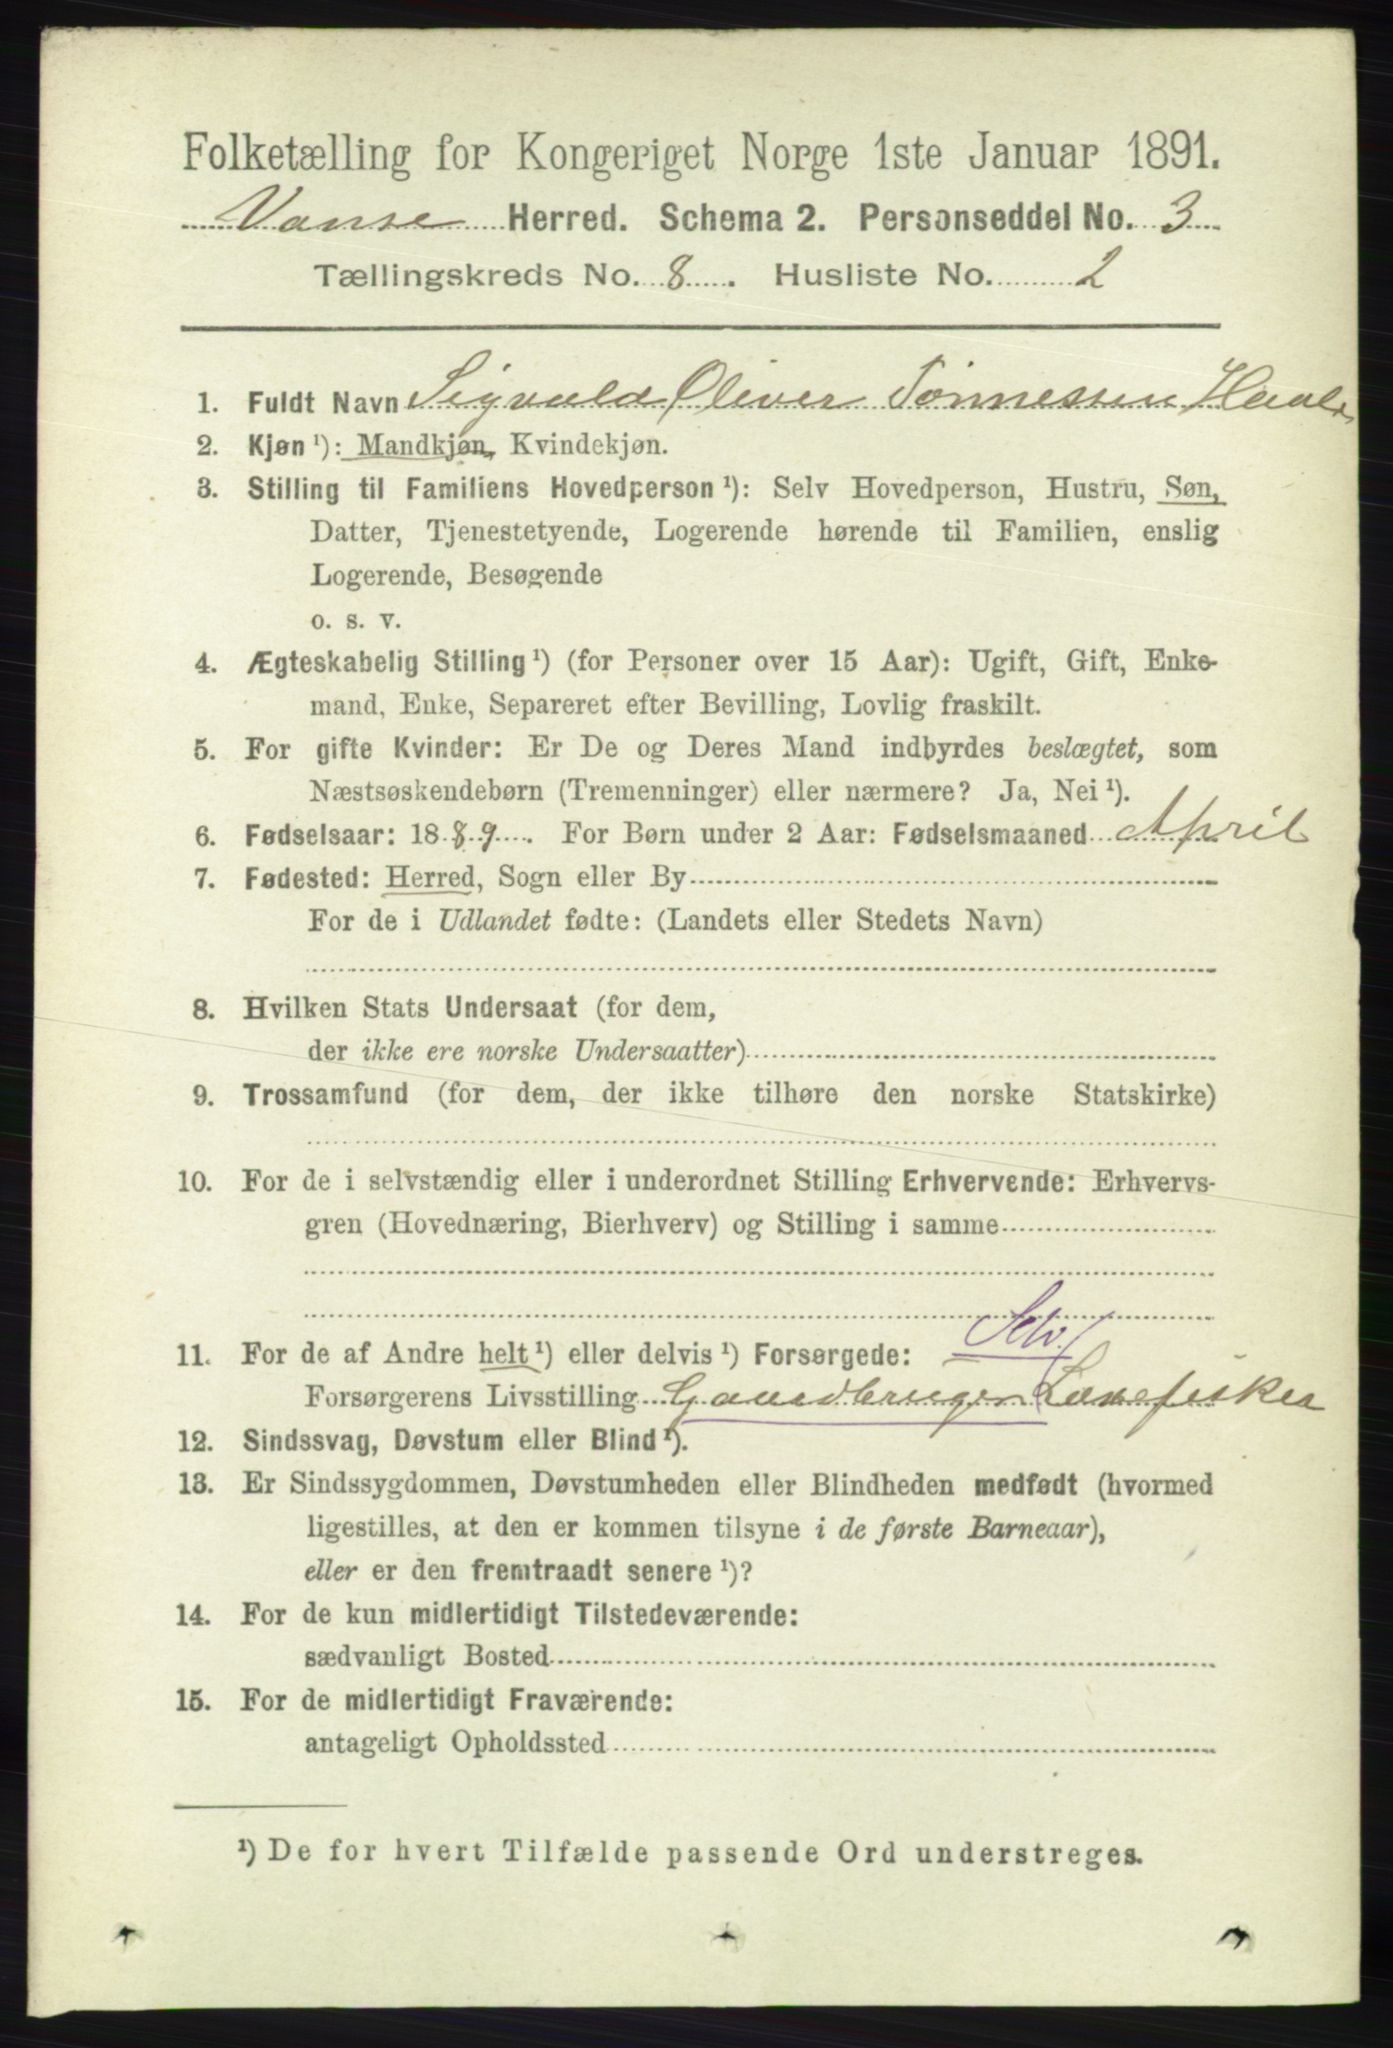 Folketælling for Kongeriget Norge 1ste Januar 1891.
Vanse Herred. Schema 2. Personseddel No. 3
Tællingskreds No. 8. Husliste No. 2
1. Fuldt Navn Sigvald Oliver Tønnessen
2. Kjøn ¹): Mandkjøn, Kvindekjøn.
3. Stilling til Familiens Hovedperson ¹): Selv Hovedperson, Hustru, Søn,
Datter, Tjenestetyende, Logerende hørende til Familien, enslig
Logerende, Besøgende
o. s. v.
4. Ægteskabelig Stilling ¹) (for Personer over 15 Aar): Ugift, Gift, Enke-
mand, Enke, Separeret efter Bevilling, Lovlig fraskilt.
5. For gifte Kvinder: Er De og Deres Mand indbyrdes beslægtet, som
Næstsøskendebørn (Tremenninger) eller nærmere? Ja, Nei ¹).
6. Fødselsaar: 1889. For Børn under 2 Aar: Fødselsmaaned April
7. Fødested: Herred, Sogn eller By
For de i Udlandet fødte: (Landets eller Stedets Navn)
8. Hvilken Stats Undersaat (for dem,
der ikke ere norske Undersaatter)
9. Trossamfund (for dem, der ikke tilhøre den norske Statskirke)
10. For de i selvstændig eller i underordnet Stilling Erhvervende: Erhvervs-
gren (Hovednæring, Bierhverv) og Stilling i samme
Selv.
11. For de af Andre helt ¹) eller delvis ¹) Forsørgede:
Forsørgerens Livsstilling Gaardbruger
12. Sindssvag, Døvstum eller Blind ¹).
13. Er Sindssygdommen, Døvstumheden eller Blindheden medfødt (hvormed
ligestilles, at den er kommen tilsyne i de første Barneaar),
eller er den fremtraadt senere ¹)?
14. For de kun midlertidigt Tilstedeværende:
sædvanligt Bosted
15. For de midlertidigt Fraværende:
antageligt Opholdssted
¹) De for hvert Tilfælde passende Ord understreges.